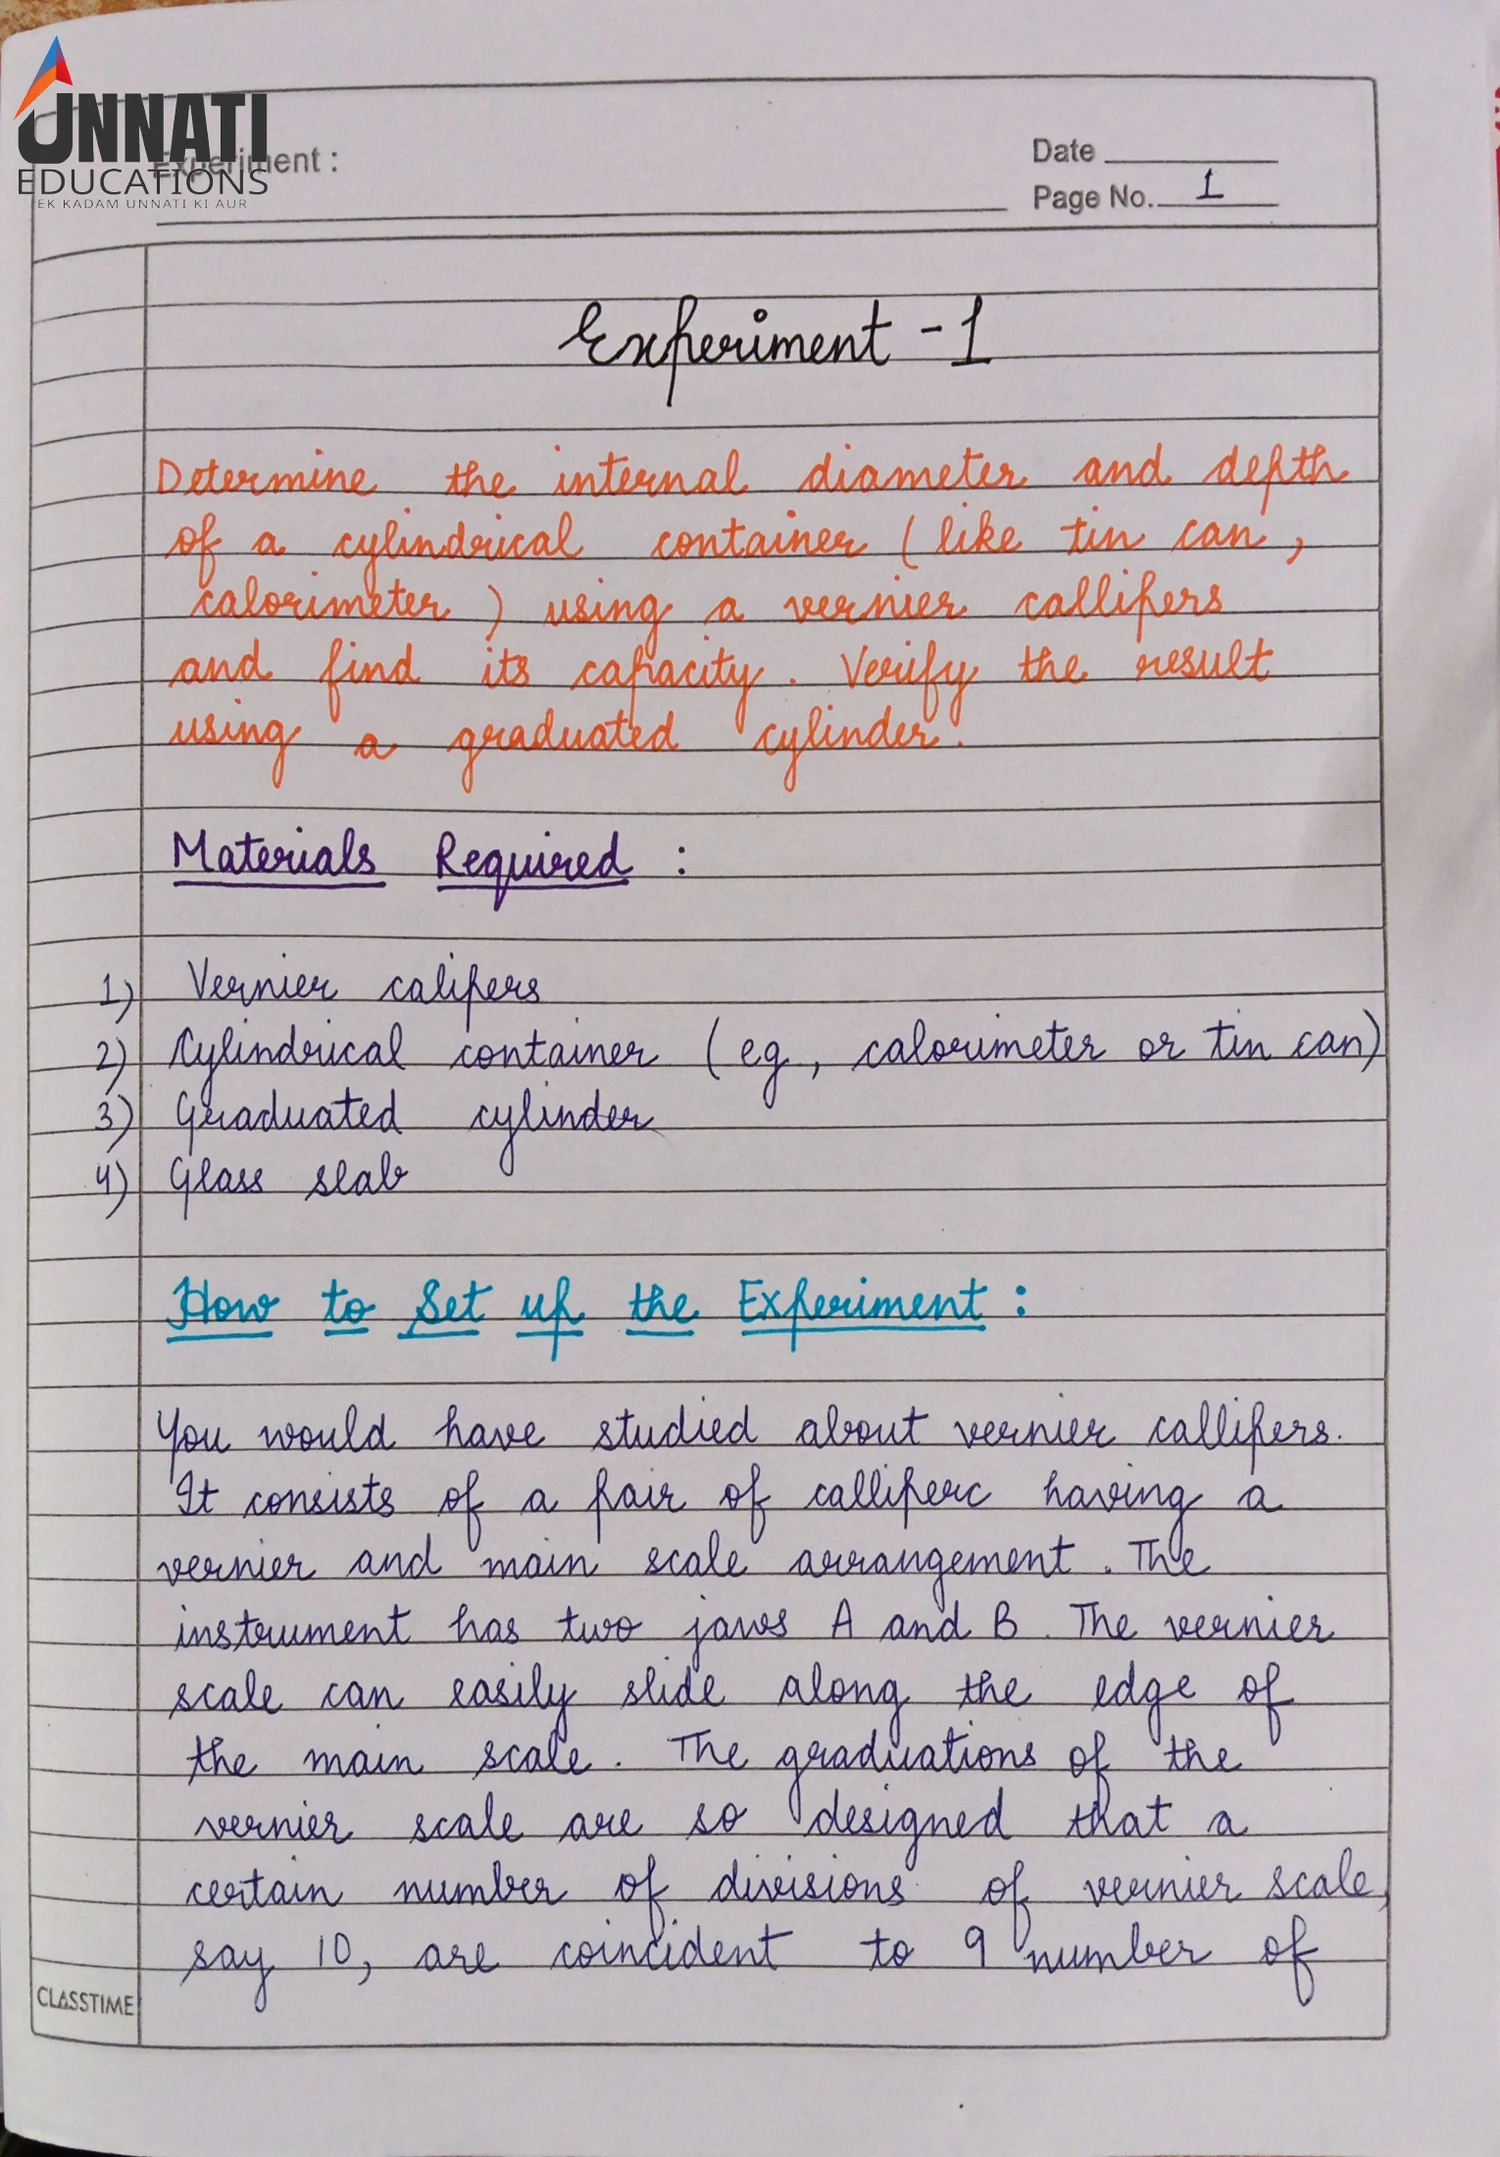 UNNATI
EDUCATIONS
EK KADAM UNNATI KI AUR
Experiment :
Date
Page No. 1
Experiment - 1
Determine the internal diameter and depth
of a cylindrical container ( like tin can ,
calorimeter ) using a vernier callipers
and find its capacity . Verify the result
using a graduated cylinder .
Materials Required :
1) Vernier calipers
2) Cylindrical container ( eg , calorimeter or tin can)
3) Graduated cylinder
4) Glass slab
How to Set up the Experiment :
You would have studied about vernier callipers .
It consists of a pair of calliperc having a
vernier and main scale arrangement . The
instrument has two jaws A and B . The vernier
scale can easily slide along the edge of
the main scale . The graduations of the
vernier scale are so designed that a
certain number of divisions of vernier scale,
say 10, are coincident to 9 number of
CLASSTIME